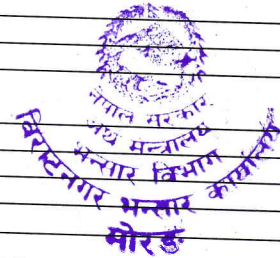 नेपाल सरकार
अर्थ मन्त्रालय
भन्सार विभाग
विराटनगर भन्सार कार्यालय
मोरङ